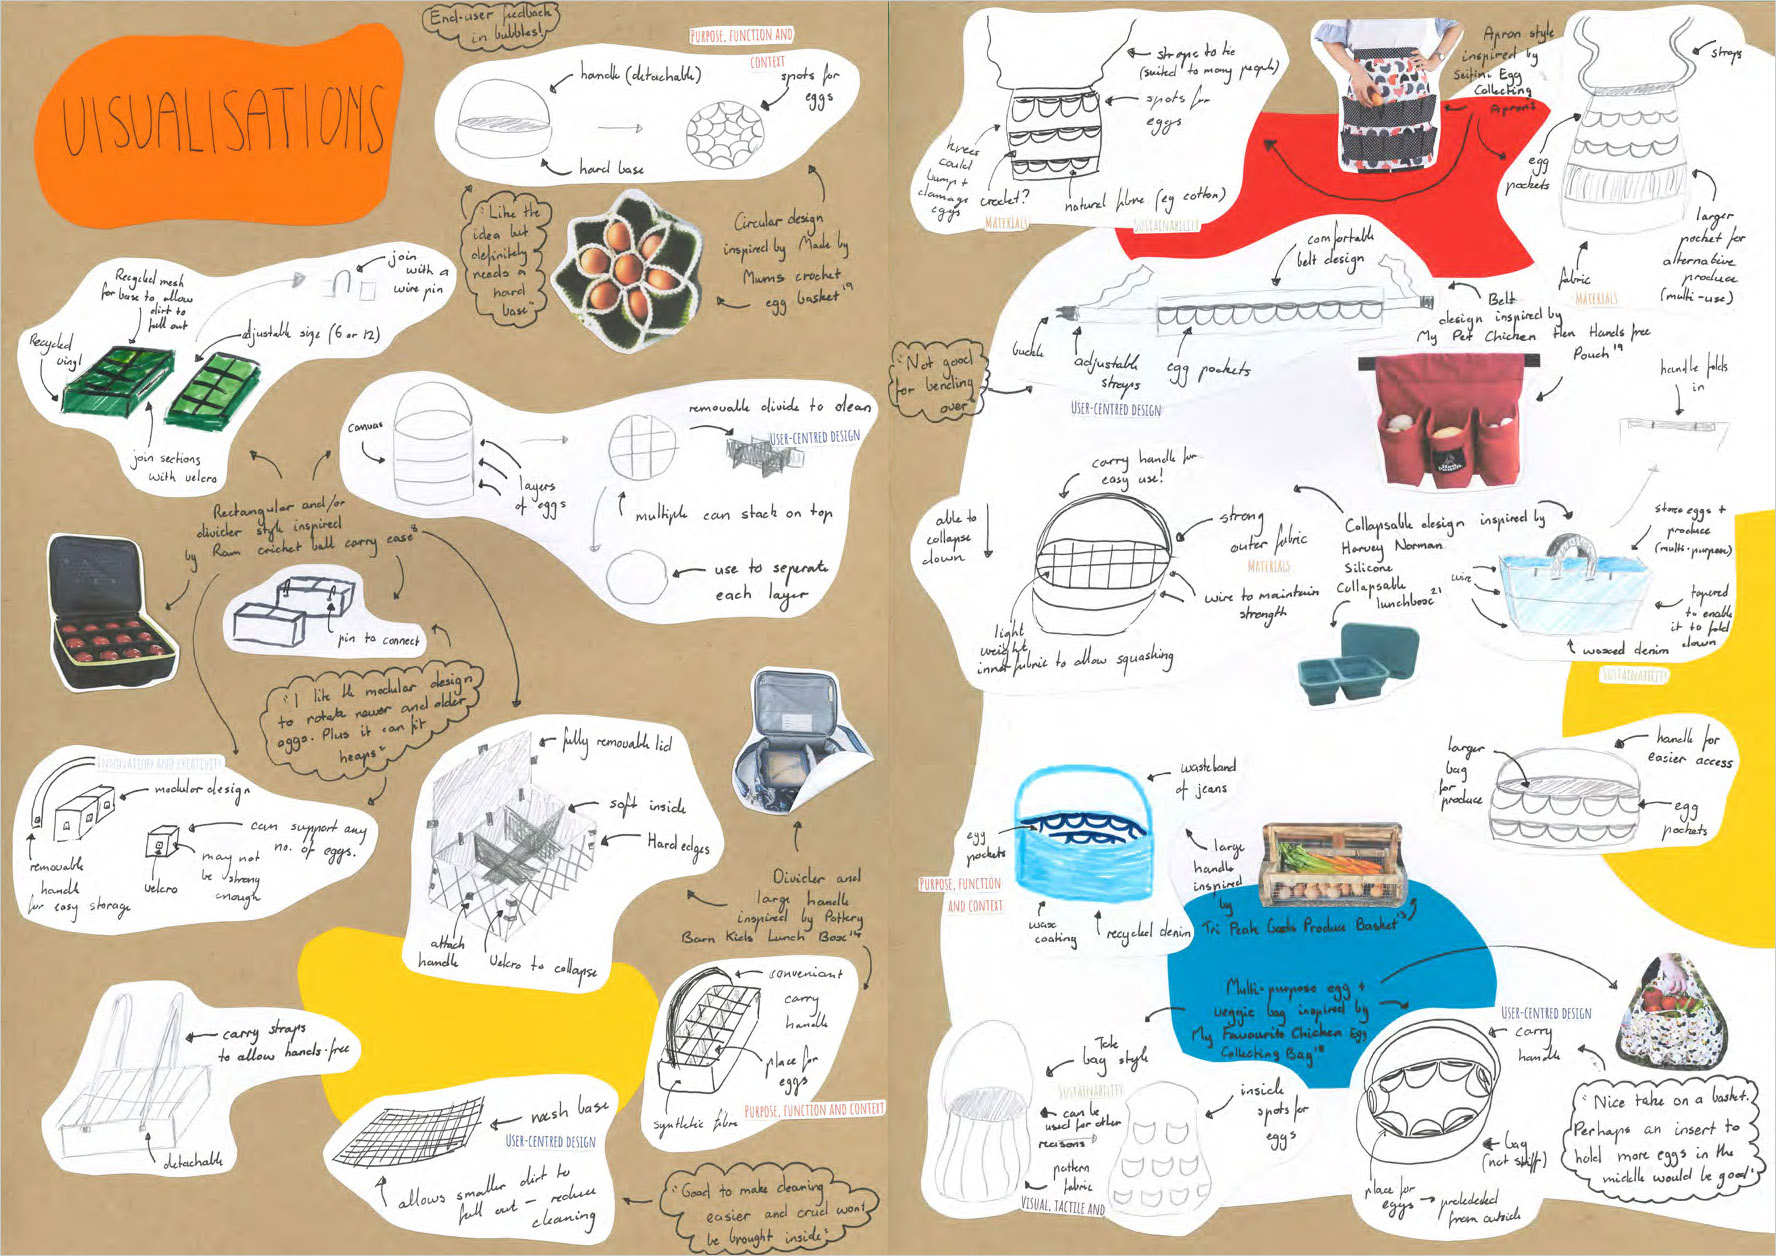 VISUALISATIONS
End-user feedback
in bubbles!
PURPOSE, FUNCTION AND
CONTEXT
handle (detachable)
spots for
eggs
hard base
"Like the
idea but
definitely
needs a
hard
base"
Circular design
inspired by Made by
Mums crochet
egg basket¹⁹
Recycled mesh
for base to allow
dirt to
fall out
join
with a
wire pin
Recycled
vinyl
adjustable size (6 or 12)
join sections
with velcro
canvas
layers
of eggs
removable divide to clean
USER-CENTRED DESIGN
multiple can stack on top
use to seperate
each layer
Rectangular and/or
divider style inspired
by Ram cricket ball carry case⁸
pin to connect
"I like the modular design
to rotate newer and older
eggs. Plus it can fit
heaps"
INNOVATION AND CREATIVITY
modular design
can support any
no. of eggs.
may not
be strong
enough
velcro
removable
handle
for easy storage
fully removable lid
soft inside
Hard edges
attach
handle
Velcro to collapse
Divider and
large handle
inspired by Pottery
Barn Kids Lunch Box¹⁴
carry straps
to allow hands-free
detachable
convenient
carry
handle
place for
eggs
synthetic fibre
PURPOSE, FUNCTION AND CONTEXT
mesh base
USER-CENTRED DESIGN
allows smaller dirt to
fall out - reduce
cleaning
"Good to make cleaning
easier and crud wont
be brought inside"
straps to tie
(suited to many people)
spots for
eggs
knees
could
bump +
damage
eggs
crochet?
MATERIALS
natural fibre (eg cotton)
SUSTAINABILITY
Apron style
inspired by
Egg
Collecting
Apron
straps
egg
pockets
larger
pocket for
alternative
produce
(multi-use)
fabric
MATERIALS
comfortable
belt design
buckle
adjustable
straps
egg pockets
USER-CENTRED DESIGN
Belt
design inspired by
My Pet Chicken Hen Hands free
Pouch¹⁹
"Not good
for bending
over"
handle folds
in
carry handle for
easy use!
able to
collapse
down
strong
outer fabric
MATERIALS
wire to maintain
strength
light
weight
inner fabric to allow squashing
Collapsable design inspired by
Harvey Norman
Silicone
Collapsable
lunchbox²¹
store eggs +
produce
(multi-purpose)
wire
tapered
to enable
it to fold
down
waxed denim
SUSTAINABILITY
wasteband
of jeans
egg
pockets
PURPOSE, FUNCTION
AND CONTEXT
wax
coating
recycled denim
large
handle
inspired
by
Tri Peak Goods Produce Basket¹³
larger
bag
for
produce
handle for
easier access
egg
pockets
Multi-purpose egg +
veggie bag inspired by
My Favourite Chicken Egg
Collecting Bag¹⁸
Tote
bag style
SUSTAINABILITY
can be
used for other
reasons
pattern
fabric
VISUAL, TACTILE AND
inside
spots for
eggs
USER-CENTRED DESIGN
carry
handle
bag
(not stiff)
place for
eggs → protected
from outside
"Nice take on a basket.
Perhaps an insert to
hold more eggs in the
middle would be good"